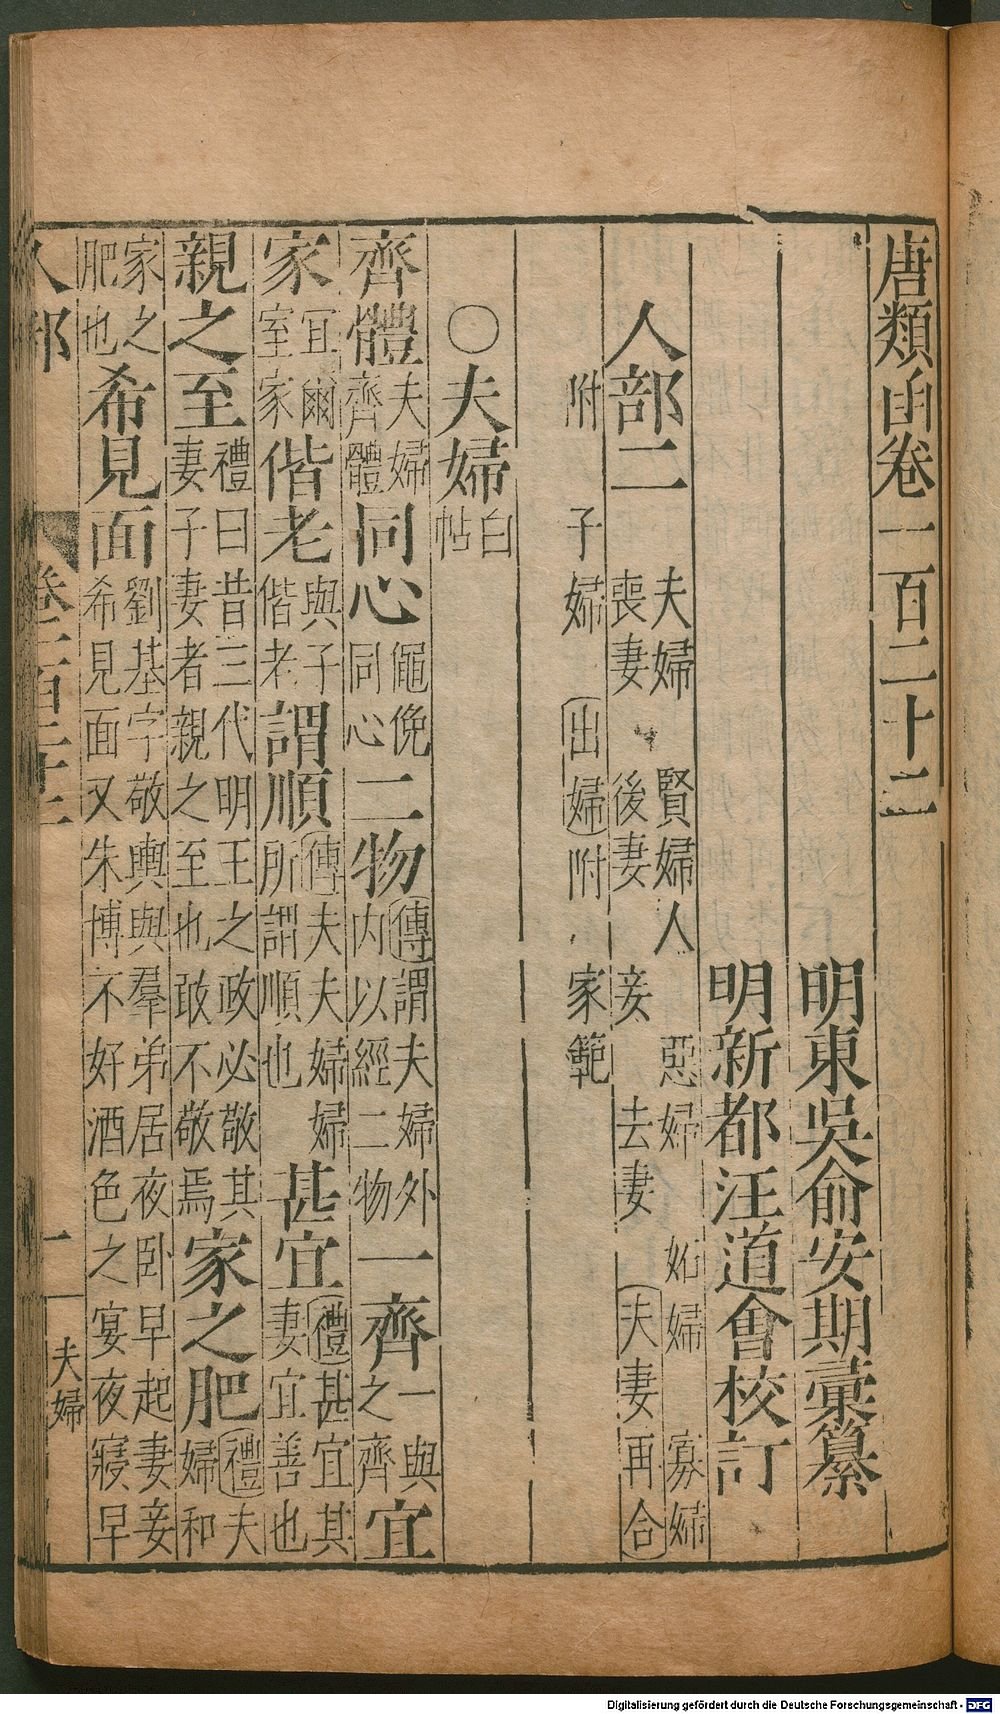 唐類函卷一百二十二
明東吳俞安期彙纂
明新都汪道會校訂
人部二
夫婦 賢婦人 惡婦 妬婦 寡婦
喪妻 後妻 妾 去妻 夫妻再合
附 子婦 出婦附 家範
○夫婦白帖
齊體夫婦齊體同心黽俛同心二物傳謂夫婦外內以經二物一齊一與之齊宜
家宜爾室家偕老與子偕老謂順傳夫夫婦婦所謂順也甚宜禮甚宜其妻宜善也
親之至禮曰昔三代明王之政必敬其妻子妻者親之至也敢不敬焉家之肥禮夫婦和
家之肥也希見面劉基字敬輿與羣弟居夜卧早起妻妾希見面又朱博不好酒色之宴夜寢早
人部 卷一百二十二 一 夫婦
Digitalisierung gefördert durch die Deutsche Forschungsgemeinschaft - DFG